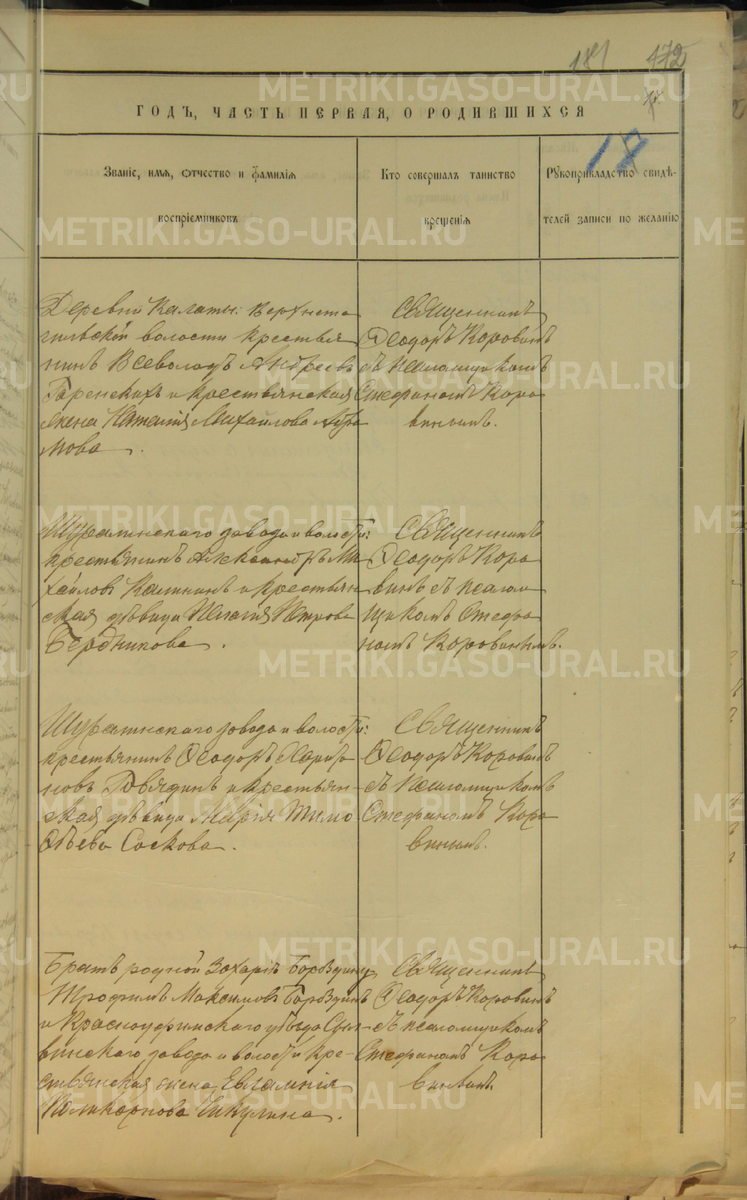 181 472
METRIKI.GASO-URAL.RU
ГОДЪ, ЧАСТЬ ПЕРВАЯ, О РОДИВШИХСЯ
18
Званіе, имя, отчество и фамилія
воспріемниковъ
Кто совершалъ таинство
крещенія
Рукоприкладство свидѣ-
телей записи по желанію
Деревни Калаты Верхнета
гильской волости крестья
нинъ Всеволодъ Андреевъ
и крестьянская
жена Наталія Михайлова
мова.
Священникъ
Ѳеодоръ Коровинъ
съ псаломщикомъ
Стефаномъ Коро
винымъ.
Шуралинскаго завода и волости:
крестьянинъ Александръ Ми
хайловъ Калининъ и крестьян
ская дѣвица Петрова
Бердникова.
Священникъ
Ѳеодоръ Коро
винъ съ псалом
щикомъ Стефа
номъ Коровинымъ.
Шуралинскаго завода и волости:
крестьянинъ Ѳеодоръ Харито
новъ и крестьян-
ская дѣвица Марія Тимо
ѳѣева Соскова.
Священникъ
Ѳеодоръ Коровинъ
съ псаломщикомъ
Стефаномъ Коро
винымъ.
Братъ родной Захарія Бороздину
Трофимъ Максимовъ Бороздинъ
и Красноуфимскаго уѣзда Сыл-
винскаго завода и волости кре-
стьянская жена Евлампія
Поликарпова Чикулина.
Священникъ
Ѳеодоръ Коровинъ
съ псаломщикомъ
Стефаномъ Коро
винымъ.